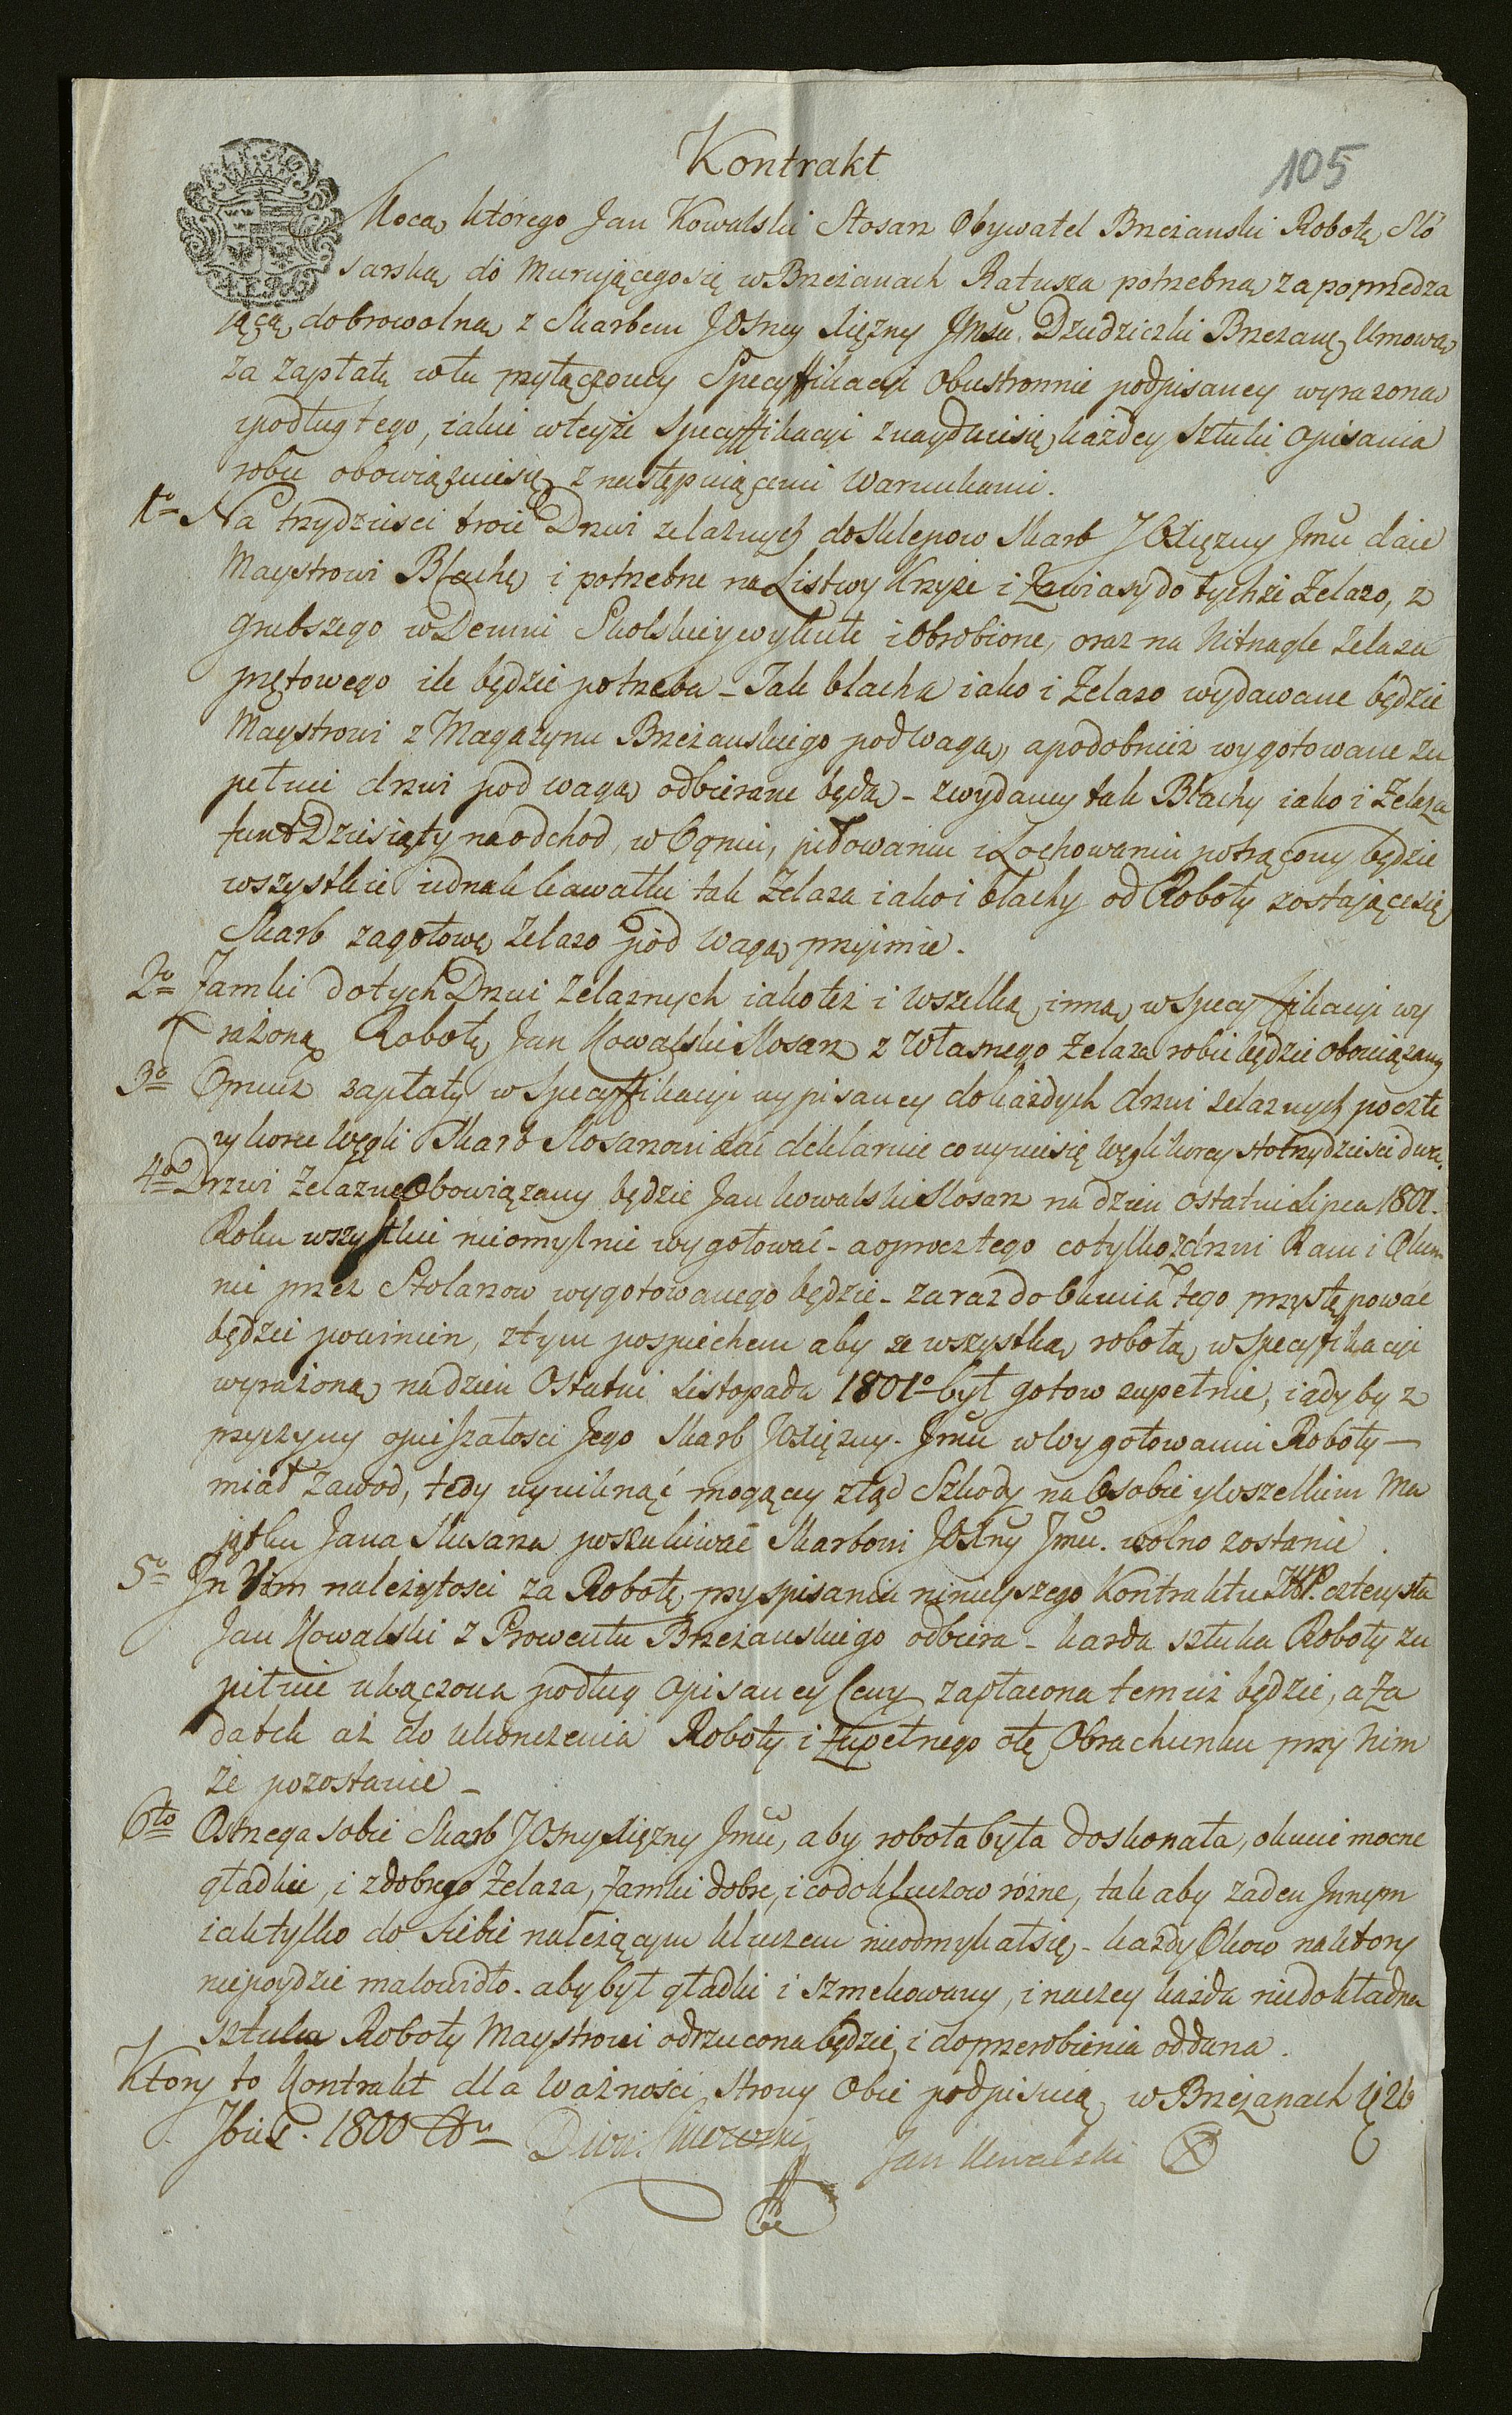 Kontrakt
105
Mocą którego Jan Kowalski Slosarz Obywatel Brzeżański Robotę Slo
sarską do Murującego się w Brzeżanach Ratusza potrzebną za poprzedza
jącą dobrowolną z Skarbem JOsney Xiężny Jmsu. Dziedziczki Brzeżan, Umową
za zapłatę w tu przyłączoney Specyffikacyi Obustronnie podpisaney wyrażoną
podług tego, iakie w teyże Specyffikacyi znayduie się każdey sztuki opisania
robić obowiązuie się z następuiącemi Warunkami.
1o Na trzydzieści troie Drzwi żelaznych do Sklepow Skarb JOXiężny Jmu daie
Maystrowi Blachę i potrzebne na Listwy Krzyże i Zawiasy do tychże Żelazo, z
grubszego w Demni Skolskiey wykute i obrobione, oraz na Nitnagle żelaza
prętowego ile będzie potrzeba - Tak blacha iako i żelazo wydawane będzie
Maystrowi z Magazynu Brzeżanskiego pod wagą, a podobnież wygotowane zu
pełnie drzwi pod wagą odbierane będą - z wydaney tak Blachy iako i Żelaza
funt Dziesiąty na odchod, w Ogniu, piłowaniu i Lochowaniu potrącony będzie
wszystkie iednak kawałki tak Żelaza iako i blachy od Roboty zostające się
Skarb za gotowe żelazo pod wagą przyimie.
2o Zamki do tych Drzwi żelaznych iako też i wszelką inną w Specyffikacyi wy
rażoną Robotę Jan Kowalski Slosarz z własnego żelaza robić będzie obowiązany
3o Oprucz zapłaty w Specyffikacyi wypisaney do każdych drzwi żelaznych po czte
ry korce węgli Skarb Slosarzowi dać deklaruie co wyniesie węgli korcy sto trzydzieści dwa.
4o Drzwi żelazne Obowiązany będzie Jan Kowalski Slosarz na dzień ostatni Lipca 1801.
Roku wszystkie nieomylnie wygotować - a oprocz tego co tylko z drzwi Ram i Okien
nic przez Stolarzow wygotowanego będzie - zaraz do okucia tego przystępować
będzie powinien, z tym pospiechem aby ze wszystką robotą w Specyfikacyi
wyrażoną na dzień Ostatni Listopada 1801o był gotow zupełnie, i gdyby z
przyczyny opieszałości Jego Skarb JOXiężny Jmu w Wygotowaniu Roboty -
miał zawod, tedy wyniknąć mogącey ztąd Szkody na Osobie y wszelkim Ma
jątku Jana Slusarza poszukiwać Skarbowi JOXny Jmu. wolno zostanie.
5o In Vim należytości za Robotę przy spisaniu ninieyszego Kontraktu ZłłP. czterysta
Jan Kowalski z Prowentu Brzeżanskiego odbiera - każda sztuka Roboty zu
pełnie ukączona podług opisaney Ceny zapłacona temuż będzie, a za
datek aż do ukonczenia Roboty i zupełnego Obrachunku przy Nim
że pozostanie -
6to Ostrzega sobie Skarb JOsny Xiężny Jmu, aby robota była doskonała, okucie mocne
gładkie, i z dobrego żelaza, zamki dobre, i co do kluczow różne, tak aby żaden Innym
iak tylko do siebie należącym kluczem nieodmykał się - każdy Okow na ktory
niepoydzie malowidło - aby był gładki i szmelcowany, inaczey każda niedokładna
sztuka Roboty Maystrowi odrzucona będzie, i do przerobienia oddana.
Ktory to Kontrakt dla ważności strony Obie podpisuią w Brzeżanach 26
Jan Kowalski